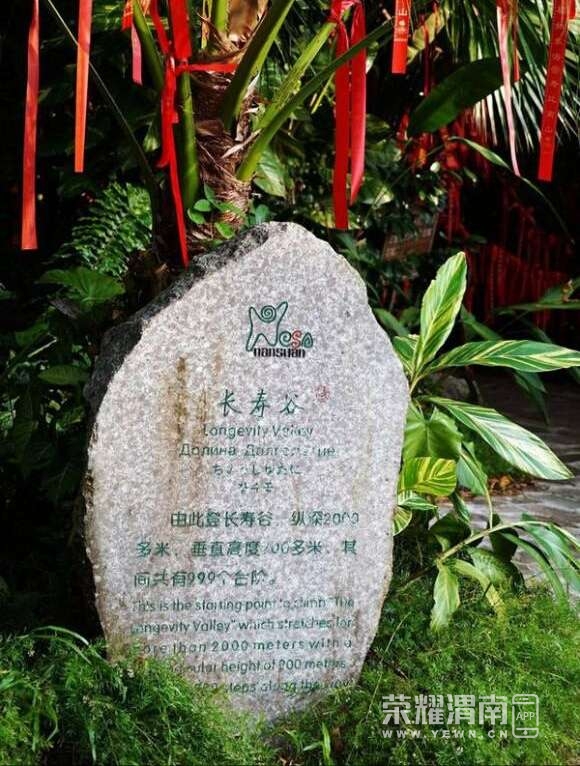 nanshan
长寿谷
Longevity Valley
Долина Долголетие
ちょうじゅたに
由此登长寿谷,纵深2000
多米,垂直高度200多米,其
间共有999个台阶。
This is the starting point to climb "The
Longevity Valley" which stretches for
more than 2000 meters with a
height of 200 meters
steps along the way
荣耀渭南
APP
WWW.YEWN.CN